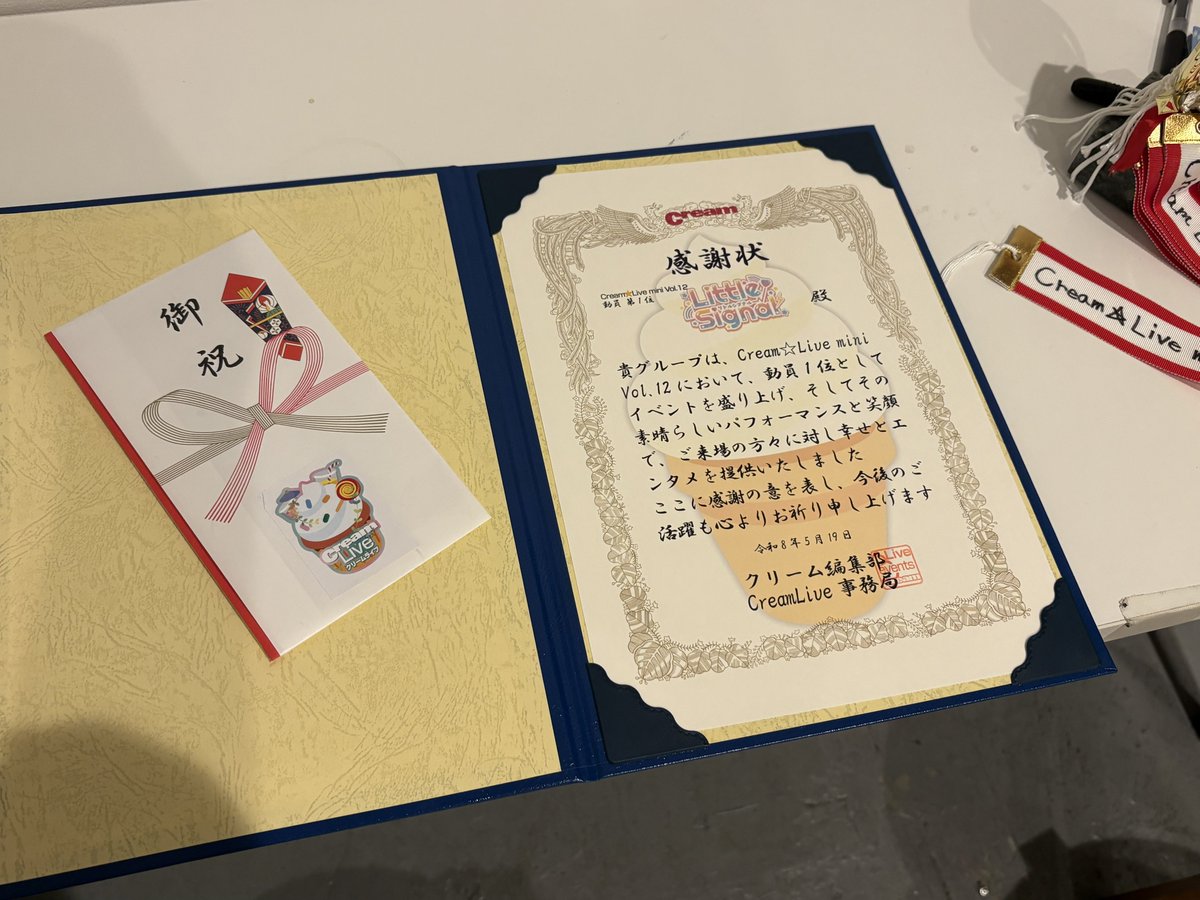 御祝
Cream
Live
クリームライブ
Cream
感謝状
Cream☆Live mini Vol.12
動員 第1位
Little
Signal
殿
貴グループは、Cream☆Live mini
Vol.12において、動員1位として
イベントを盛り上げ、そしてその
素晴らしいパフォーマンスと笑顔
で、ご来場の方々に対し幸せとエ
ンタメを提供いたしました
ここに感謝の意を表し、今後のご
活躍も心よりお祈り申し上げます
令和8年5月19日
クリーム編集部
CreamLive 事務局
Live
events
Cream☆Live